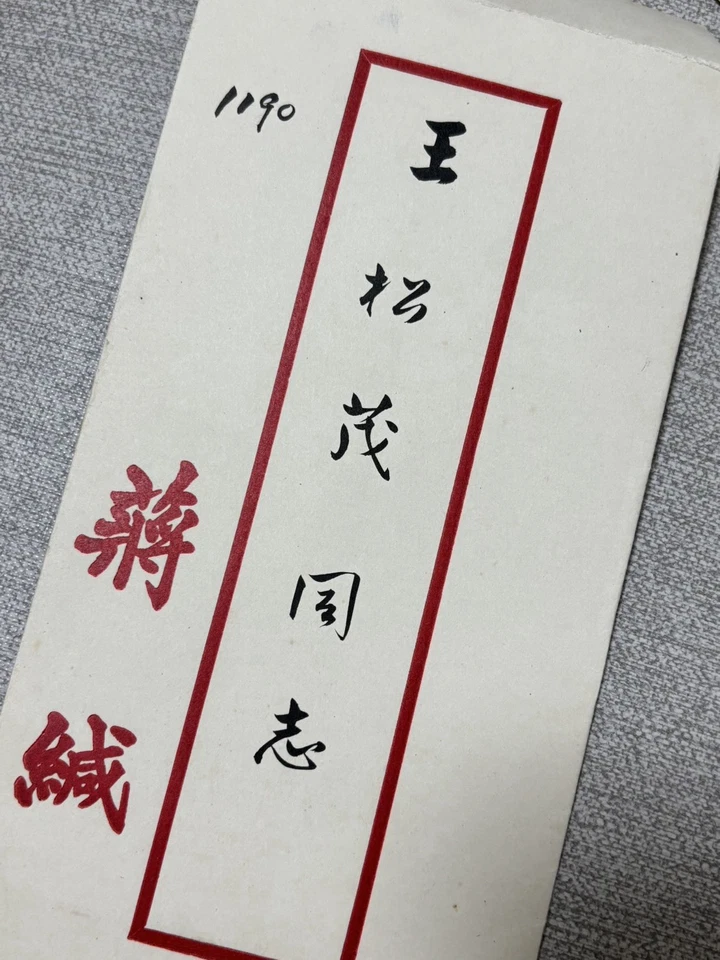 1190
王松茂同志
蒋緘